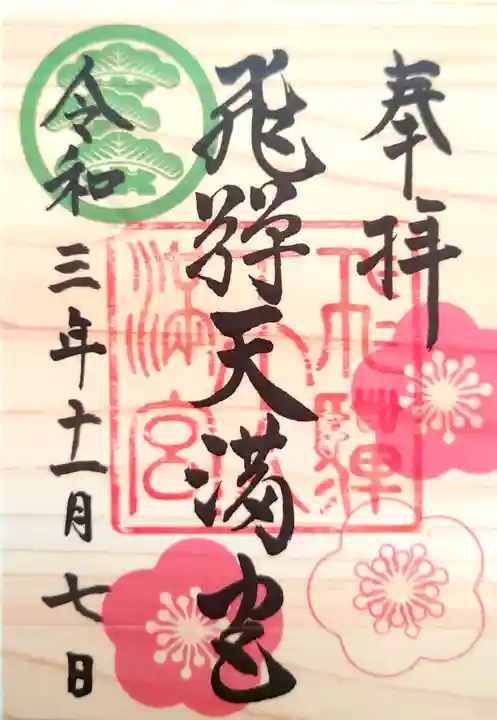 奉拝
飛騨天満宮
令和三年十一月七日
飛騨天満宮